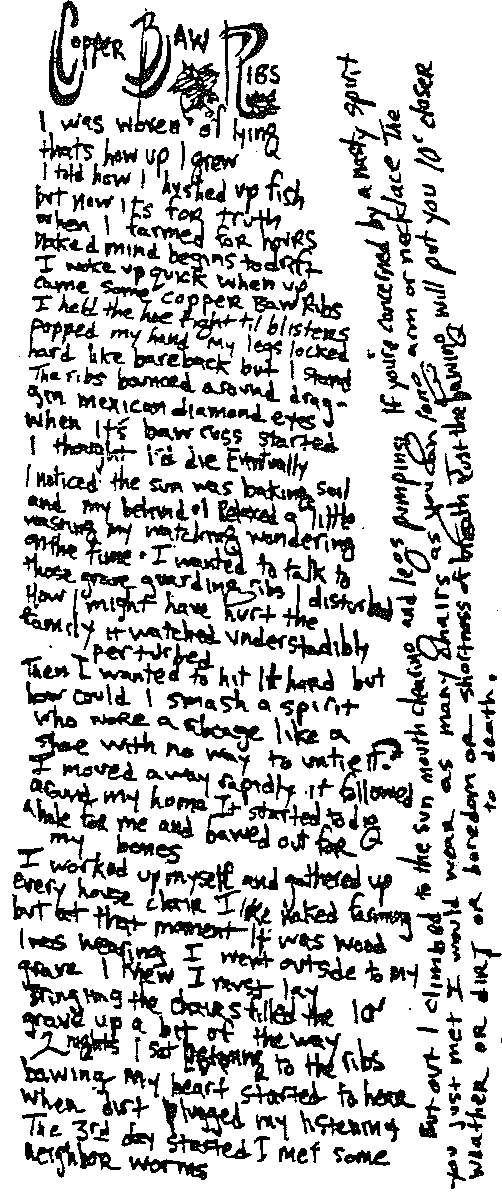 COPPER BAW RIBS
I was woven of lying
thats how up I grew
I told how I hushed up fish
but now its for truth
when I farmed for hours
naked mind begins to drift
I woke up quick when up
came some copper Baw Ribs
I held the hoe tight til blisters
popped my hand my legs locked
hard like bareback but I stand
The ribs bounced around drag-
gin mexican diamond eyes
When it's baw cuss started
I thought I'd die Eventually
I noticed the sun was baking soil
and my behind . I Relaxed a little
washing my watching wondering
on the time . I wanted to talk to
those grave guarding ribs I disturbed
How I might have hurt the
family it watched understadibly
perturbed
Then I wanted to hit it hard but
how could I smash a spirit
who wore a ribcage like a
shoe with no way to untie it.
I moved away rapidly it followed
around my home It started to dig
a hole for me and bawed out for
my bones
I worked up myself and gathered up
every house chair I like naked farming
but at that moment it was wood
I was wearing I went outside to my
grave I knew I must lay
Bringing the chairs tilled the 10'
grave up a bit of the way
2 nights I sat listening to the ribs
bawing my heart started to hear
when dirt plugged my listening
The 3rd day started I met some
neighbor worms
But out I climbed to the sun mouth clearing and legs pumping If you're concerned by a nasty spirit
you just met I would wear as many chairs as you can for arm or necklace The
weather or dirt or boredom or shortness of breath Just the bawing will put you 10' closer
to death.